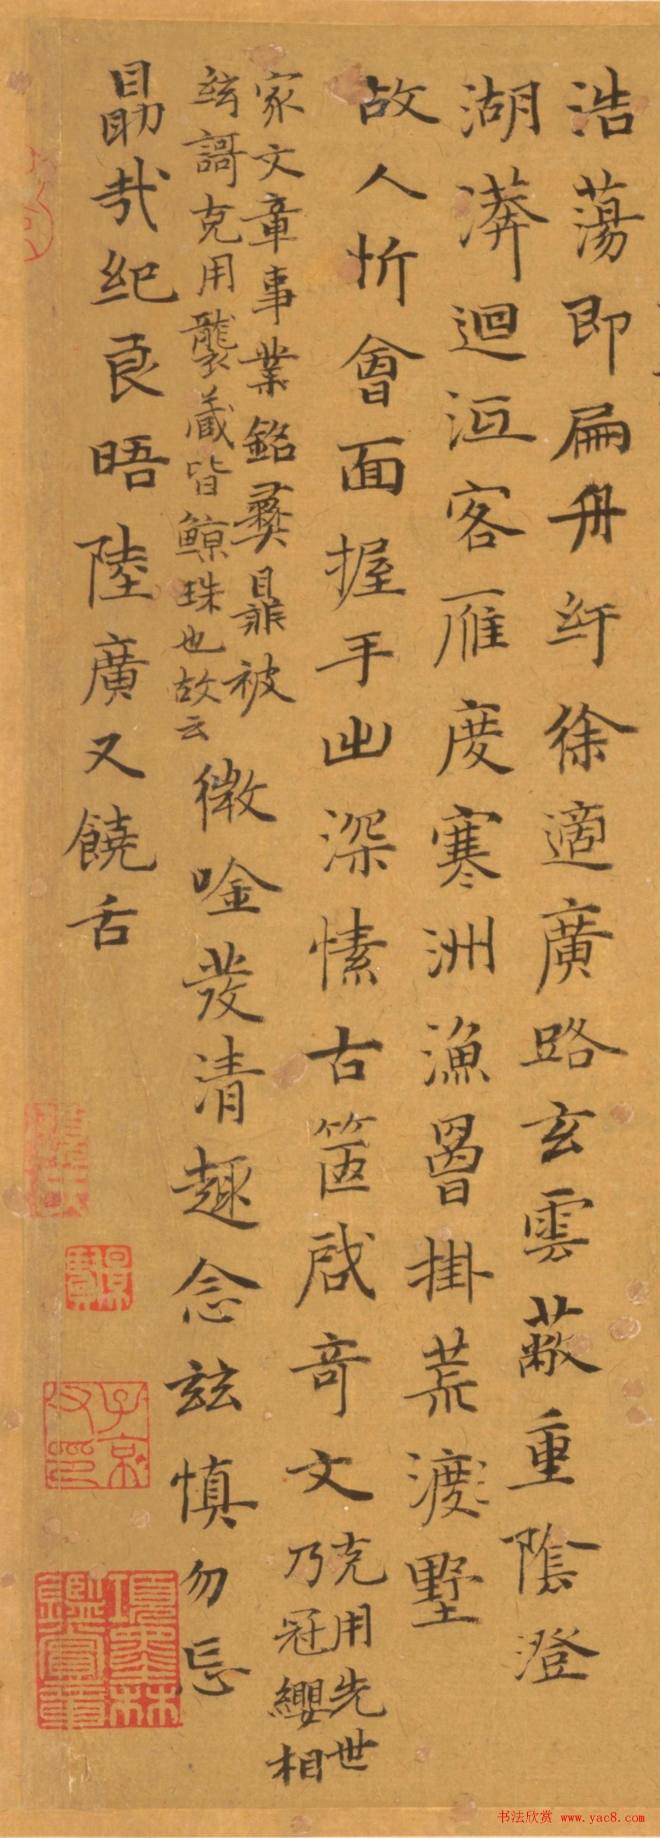 浩蕩即扁舟紆徐適廣路玄雲蔽重陰澄
湖漭迴沍客雁度寒洲漁罾掛荒渡墅
故人忻會面握手出深愫古篋啟奇文
克用先世
乃冠纓相
家文章事業銘彝鼎被
玆謌克用襲藏皆鯨珠也故云
微唫發清趣念玆慎勿忘
勗哉紀良晤陸廣又饒舌
子京父印
項墨林鑑賞章
书法欣赏 www.yac8.com